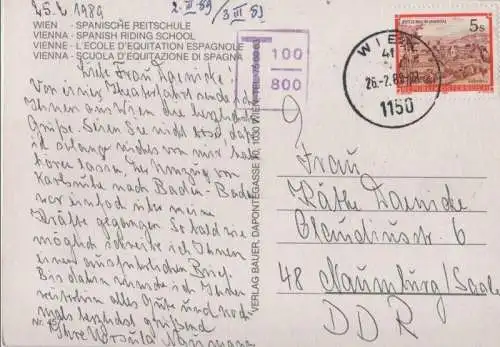 25.2.1989
2. III 89 / 3 III 89
WIEN - SPANISCHE REITSCHULE
VIENNA - SPANISH RIDING SCHOOL
VIENNE - L'ECOLE D'EQUITATION ESPAGNOLE
VIENNA - SCUOLA D'EQUITAZIONE DI SPAGNA
Liebe Frau
Von einer Theaterfahrt sende ich
Ihnen aus Wien die herzlichsten
Grüße. Seien Sie nicht böse, daß
ich so lange nichts von mir habe
hören lassen. Der Umzug von
Karlsruhe nach Baden-Baden
war einfach über meine
Kräfte gegangen. Sobald wie
möglich schreibe ich Ihnen
einen ausführlichen Brief.
Bis dahin wünsche ich Ihnen
weiterhin alles Gute und noch-
mals herzlichst grüßend
Ihre Ursula
Nr.
VERLAG BAUER, DAPONTEGASSE 10, 1030 WIEN
T
100
800
WIEN
41
26.-2.89
1150
5s
REPUBLIK ÖSTERREICH
Frau
Käthe
Claudiusstr.
48 Naumburg/Saale
DDR